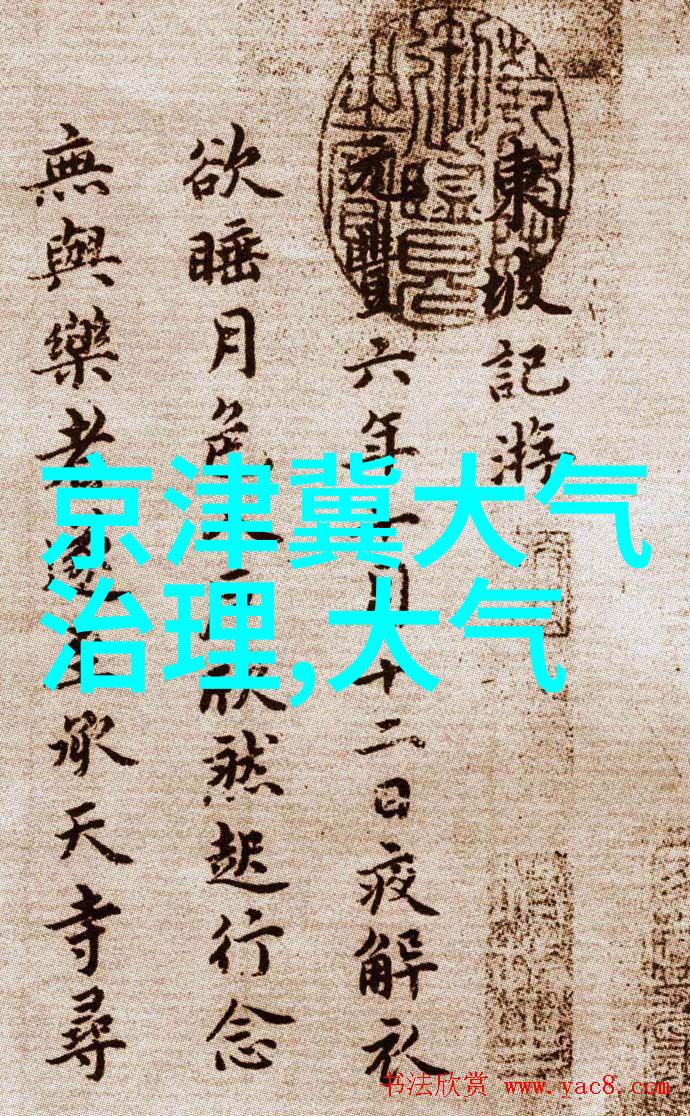 東坡記游
元豐六年十月十二日夜解衣
欲睡月色入户欣然起行念
無與樂者遂至承天寺尋
京津冀大气
治理,大气
书法欣赏 www.yac8.com